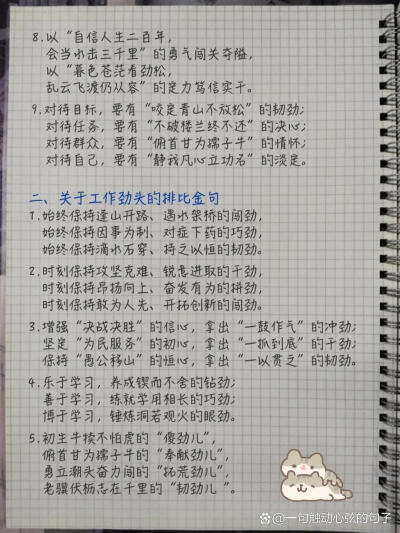 8.以“自信人生二百年，
会当水击三千里”的勇气闯关夺隘，
以“暮色苍茫看劲松，
乱云飞渡仍从容”的定力笃信实干。
9.对待目标，要有“咬定青山不放松”的韧劲；
对待任务，要有“不破楼兰终不还”的决心；
对待群众，要有“俯首甘为孺子牛”的情怀；
对待自己，要有“静我凡心立功名”的淡定。
二、关于工作劲头的排比金句
1.始终保持逢山开路、遇水架桥的闯劲，
始终保持因事为制、对症下药的巧劲，
始终保持滴水石穿、持之以恒的韧劲。
2.时刻保持攻坚克难、锐意进取的干劲，
时刻保持昂扬向上、奋发有为的拼劲，
时刻保持敢为人先、开拓创新的闯劲。
3.增强“决战决胜”的信心，拿出“一鼓作气”的冲劲；
坚定“为民服务”的初心，拿出“一抓到底”的干劲；
保持“愚公移山”的恒心，拿出“一以贯之”的韧劲。
4.乐于学习，养成锲而不舍的钻劲；
善于学习，练就学用相长的巧劲；
博于学习，锤炼洞若观火的眼劲。
5.初生牛犊不怕虎的“傻劲儿”，
俯首甘为孺子牛的“奉献劲儿”，
勇立潮头奋力闯的“拓荒劲儿”，
老骥伏枥志在千里的“韧劲儿”。
@一句触动心弦的句子